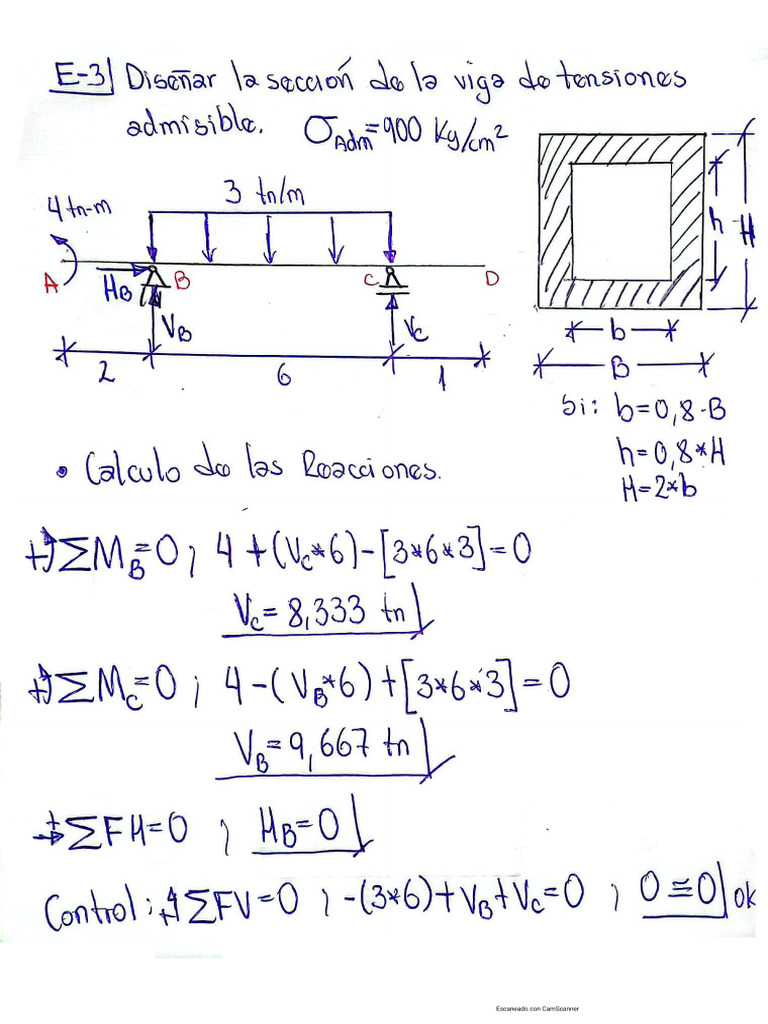 E-3 Diseñar la sección de la viga de tensiones
admisible. σAdm=900 Kg/cm²
4 tn-m
3 tn/m
A
HB
B
C
D
VB
VC
2
6
1
h
H
b
B
Si: b=0,8·B
h=0,8*H
H=2*b
• Calculo de las Reacciones.
+↺ΣMB=0; 4+(VC*6)-[3*6*3]=0
VC=8,333 tn
+↺ΣMC=0; 4-(VB*6)+[3*6*3]=0
VB=9,667 tn
+→ΣFH=0; HB=0
Control; +↑ΣFV=0; -(3*6)+VB+VC=0; 0≅0 ok
Escaneado con CamScanner